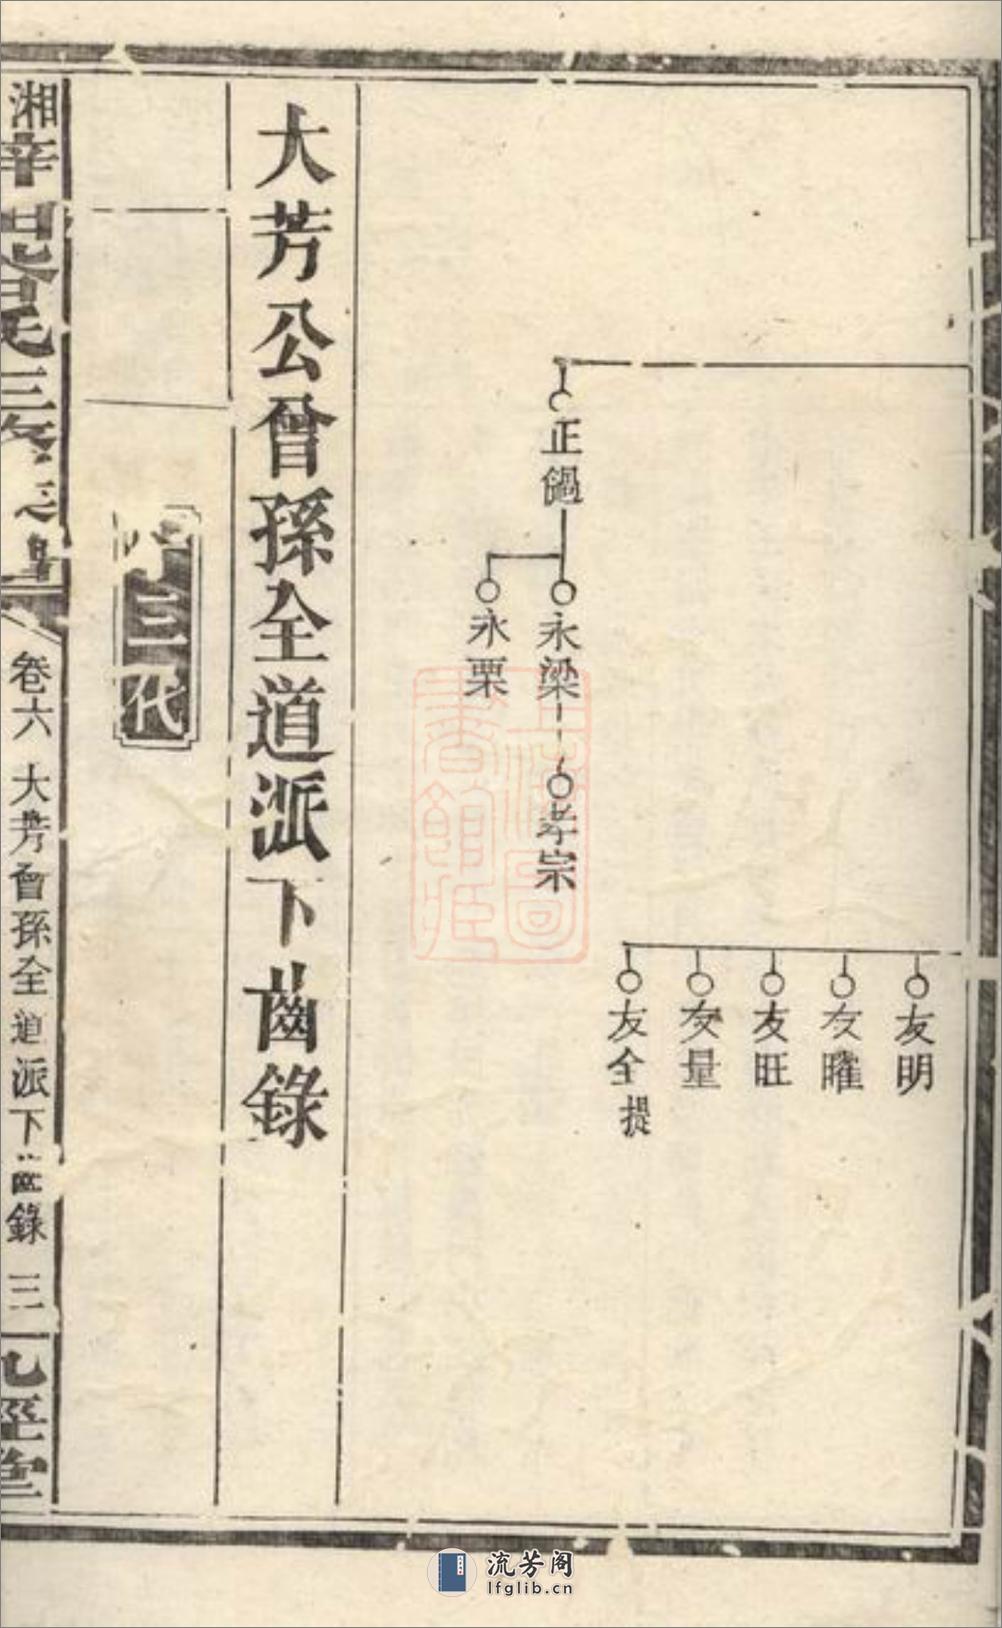 友明
友曜
友旺
友量
友全 提
正
永梁
孝宗
永栗
大芳公曾孫全道派下齒錄
三代
湘
卷六 大芳曾孫全道派下齒錄 三
上海圖書館藏
流芳阁
lfglib.cn